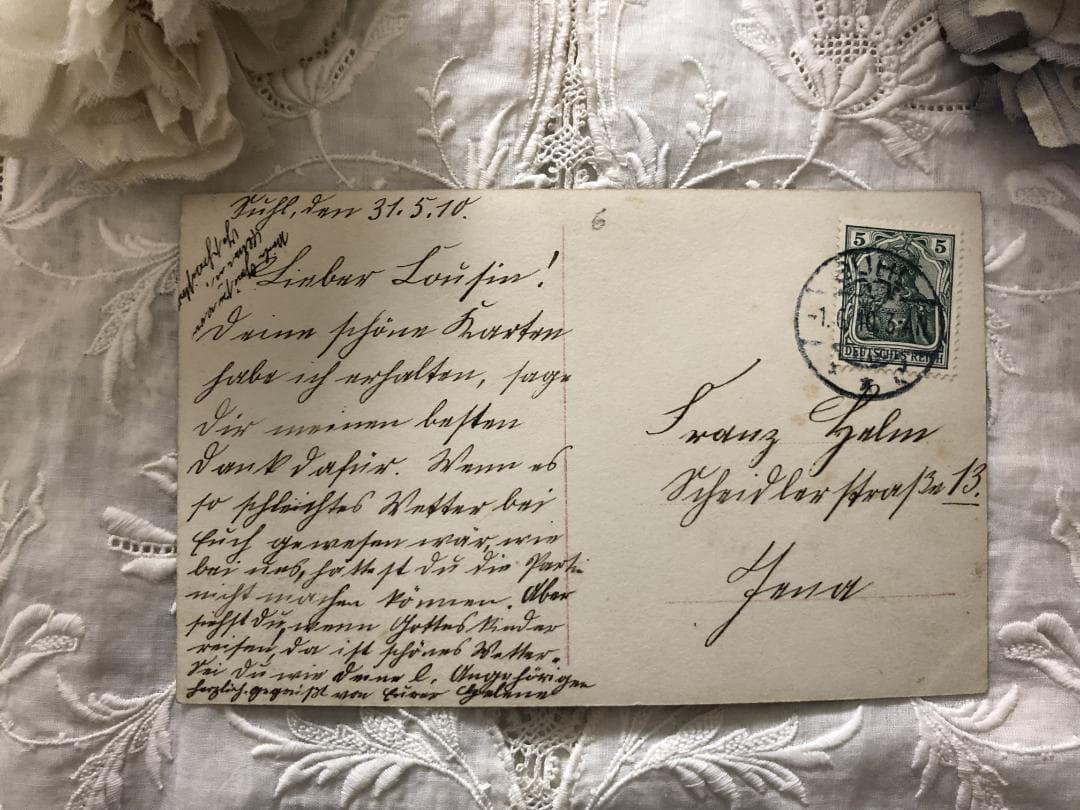 Suhl, den 31.5.10.
Lieber Cousin!
Deine schöne Karten
habe ich erhalten, sage
Dir meinen besten
Dank dafür. Wenn es
so schlechtes Wetter bei
Euch gewesen wär, wie
bei uns, hättest Du die Partie
nicht machen können. Aber
siehst Du, wenn Gottes Kinder
reisen, da ist schönes Wetter.
Sei Du wie Deine l. Angehörigen
herzlich gegrüßt von Eurer Helene
6
5 5
DEUTSCHES REICH
SUHL
-1. 10. 3-4N
Franz Helm
Scheidlerstraße 13.
Jena